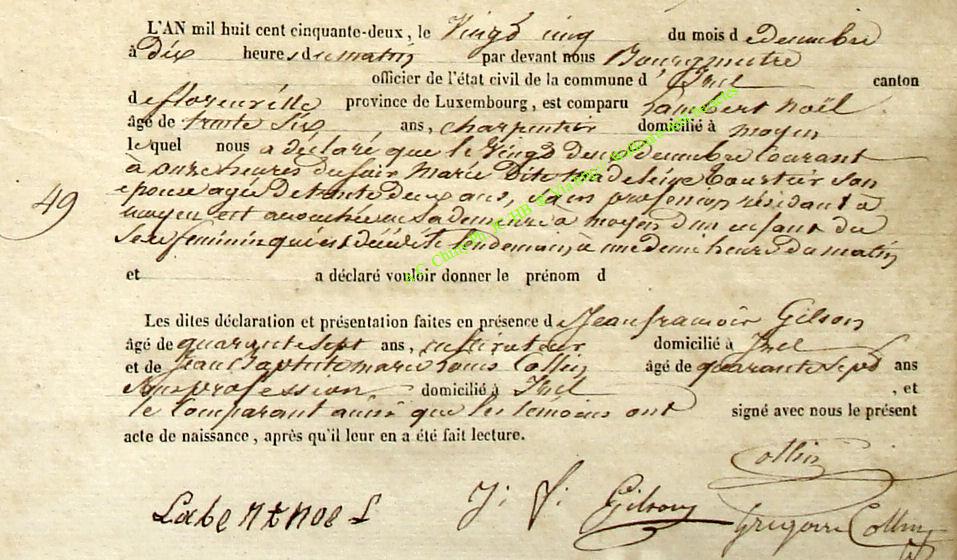 L'AN mil huit cent cinquante-deux, le Vingt cinq du mois d e decembre
à dix heures du matin par devant nous Bourgmestre
officier de l'état civil de la commune d' Izel canton
de florenville province de Luxembourg, est comparu Lambert Noël
âgé de trente six ans, charpentier domicilié à moyen
lequel nous a déclaré que le Vingt deux decembre Courant
à onze heures du soir Marie dite Madeleine Courtier son
epouse agée de trente deux ans, sans profession résidant à
moyen est accouchée en sa demeure à moyen d'un enfant du
sexe feminin qui est décédé le lendemain à une demi heure du matin
et a déclaré vouloir donner le prénom d
Les dites déclaration et présentation faites en présence de Jean françois Gilson
âgé de quarante sept ans, instituteur domicilié à Izel
et de Jean Baptiste marie Louis Collin âgé de quarante sept ans
sans profession domicilié à Izel , et
le Comparant ainsi que les temoins ont signé avec nous le présent
acte de naissance, après qu'il leur en a été fait lecture.
49
Collin
Labentnoel J: f: Gilson Gregoire Collin